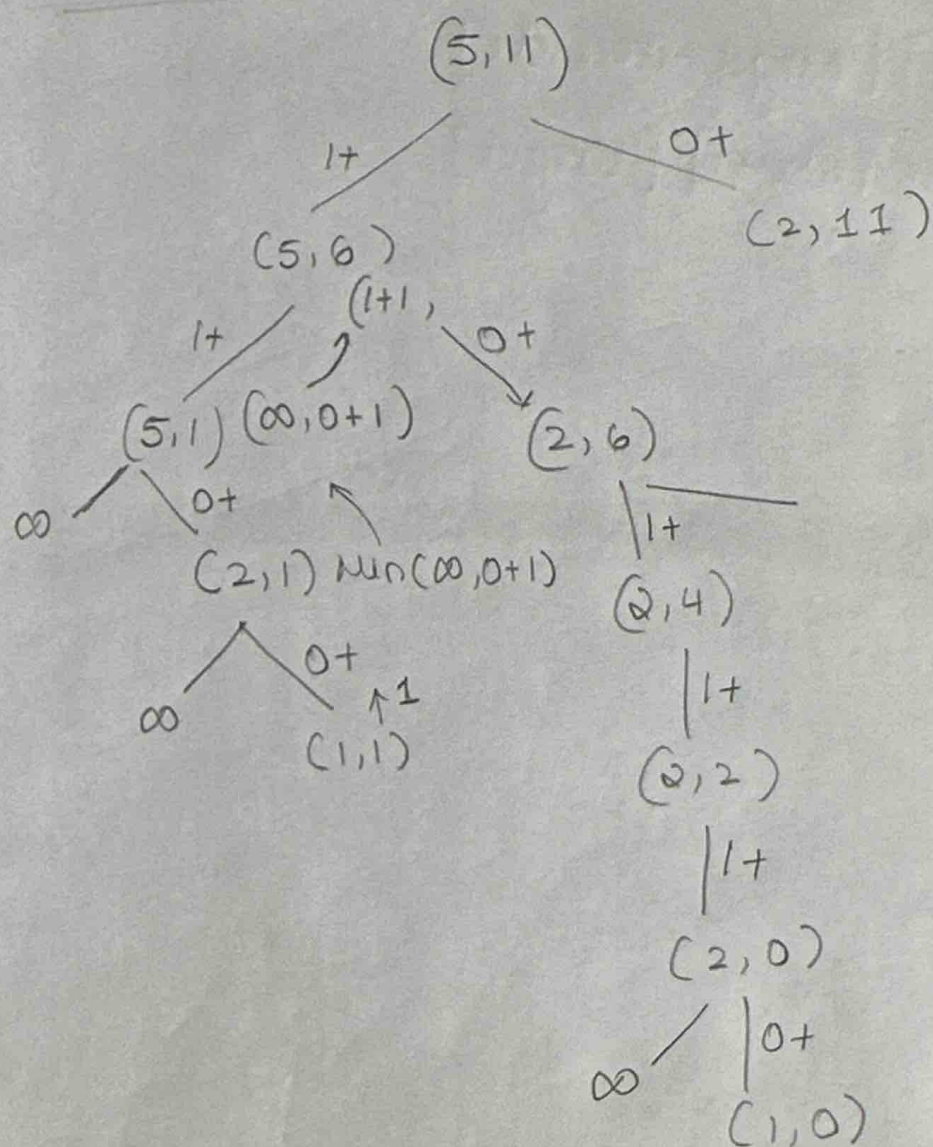 (5,11)
1+ 0+
(2,11)
(5,6)
(1+1,
1+ 0+
(5,1) (∞,0+1) (2,6)
∞ 0+ 1+
(2,1) Min(∞,0+1) (2,4)
0+ 1+
∞ ↑1
(1,1) (2,2)
1+
(2,0)
0+
∞
(1,0)